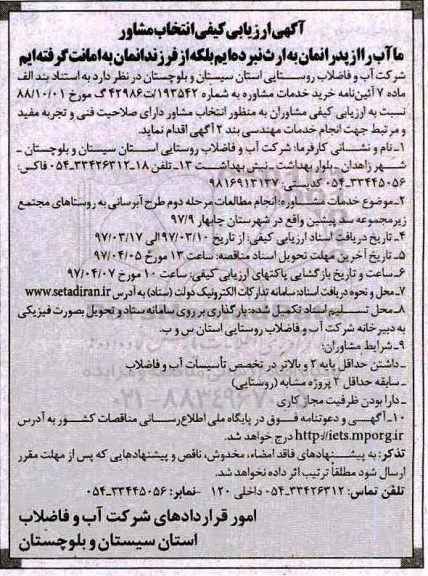 آگهی ارزیابی کیفی انتخاب مشاور
ما آب را از پدرانمان به ارث نبرده‌ایم بلکه از فرزندانمان به امانت گرفته‌ایم
شرکت آب و فاضلاب روستایی استان سیستان و بلوچستان در نظر دارد به استناد بند الف
ماده ۷ آئین‌نامه خرید خدمات مشاوره به شماره ۱۹۳۵۴۲/ت۴۲۹۸۶ک مورخ ۸۸/۱۰/۰۱
نسبت به ارزیابی کیفی مشاوران به منظور انتخاب مشاور دارای صلاحیت فنی و تجربه مفید
و مرتبط جهت انجام خدمات مهندسی بند ۲ آگهی اقدام نماید.
۱-نام و نشانی کارفرما: شرکت آب و فاضلاب روستایی استان سیستان و بلوچستان -
شهر زاهدان - بلوار بهداشت - نبش بهداشت ۱۳ - تلفن ۱۸-۳۳۴۲۶۳۱۲-۰۵۴ فاکس:
۳۳۴۴۵۰۵۶-۰۵۴ کدپستی: ۹۸۱۶۹۱۳۱۳۷
۲-موضوع خدمات مشاوره: انجام مطالعات مرحله دوم طرح آبرسانی به روستاهای مجتمع
زیرمجموعه سد پیشین واقع در شهرستان چابهار ۹۷/۹
۴-تاریخ دریافت اسناد ارزیابی کیفی: از تاریخ ۹۷/۰۳/۱۰ الی ۹۷/۰۳/۱۷
۵-تاریخ آخرین مهلت تحویل اسناد مناقصه: ساعت ۱۳ مورخ ۹۷/۰۴/۰۵
۶-ساعت و تاریخ بازگشایی پاکتهای ارزیابی کیفی: ساعت ۱۰ مورخ ۹۷/۰۴/۰۷
۷-محل و نحوه دریافت اسناد: سامانه تدارکات الکترونیک دولت (ستاد) به آدرس www.setadiran.ir
۸-محل تسلیم اسناد تکمیل شده: بارگذاری بر روی سامانه ستاد و تحویل بصورت فیزیکی
به دبیرخانه شرکت آب و فاضلاب روستایی استان س و ب.
۹-شرایط مشاوران:
- داشتن حداقل پایه ۲ و بالاتر در تخصص تأسیسات آب و فاضلاب
- سابقه حداقل ۲ پروژه مشابه (روستایی)
- دارا بودن ظرفیت مجاز کاری
۱۰-آگهی و دعوتنامه فوق در پایگاه ملی اطلاع‌رسانی مناقصات کشور به آدرس
http://iets.mporg.ir درج خواهد شد.
تذکر: به پیشنهادهای فاقد امضاء، مخدوش، ناقص و پیشنهادهایی که پس از مهلت مقرر
ارسال شود مطلقاً ترتیب اثر داده نخواهد شد.
تلفن تماس: ۳۳۴۲۶۳۱۲-۰۵۴ داخلی ۱۲۰ - نمابر: ۳۳۴۴۵۰۵۶-۰۵۴
امور قراردادهای شرکت آب و فاضلاب
استان سیستان و بلوچستان